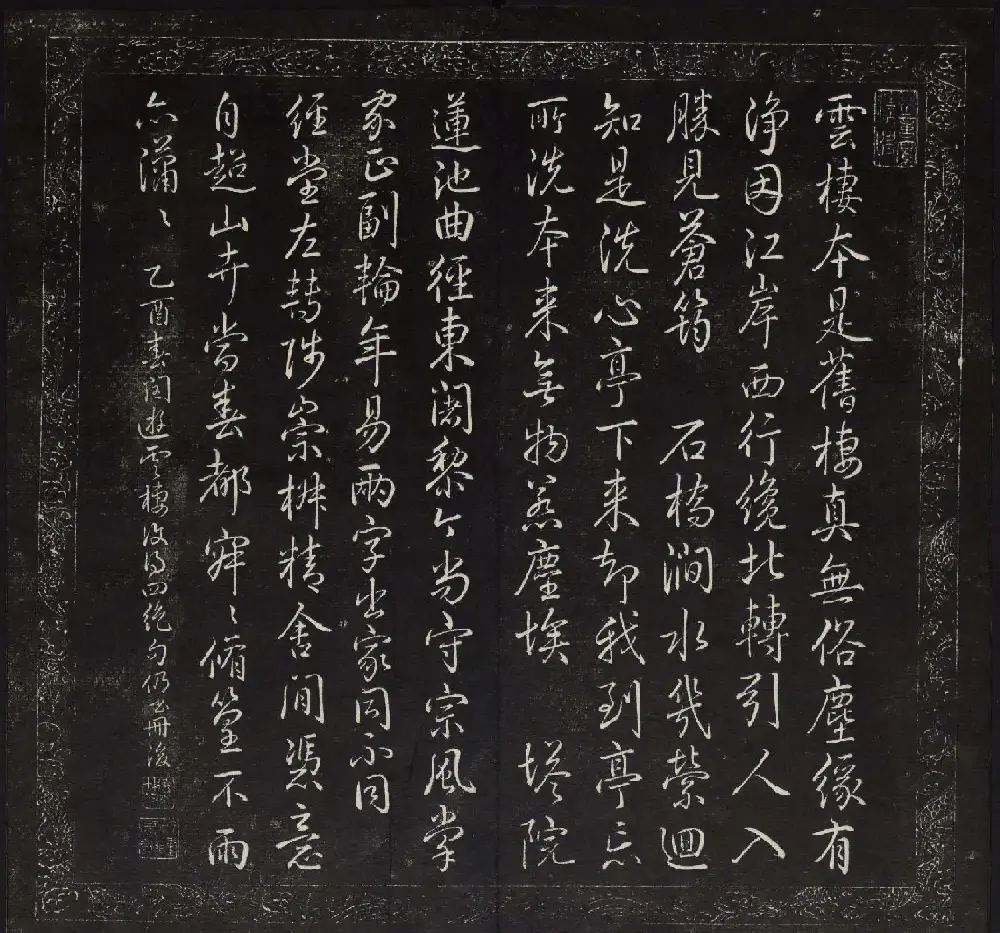 雲棲本是舊棲真無俗塵緣有
淨因江岸西行纔北轉引人入
勝見蒼筠　石橋澗水幾縈迴
知是洗心亭下来却我到亭忘
所洗本来無物惹塵埃　塔院
蓮池曲徑東闍黎个當守宗風掌
家正副輪年易兩字出家同不同
經堂左轉陟崇椒精舍間憑意
自超山卉當春都寂〻脩篁不雨
亦瀟〻　乙酉春閏遊雲棲復得四絶句仍書冊後